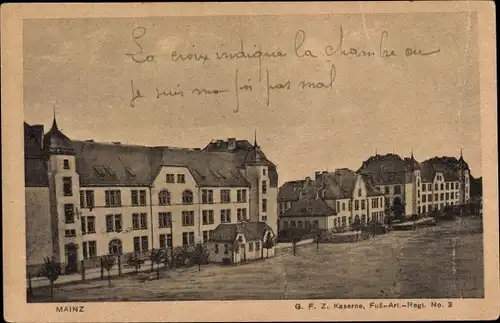 La croix indique la chambre ou
Je suis pas mal
MAINZ
G. F. Z. Kaserne, Fuß-Art.-Regt. No. 3